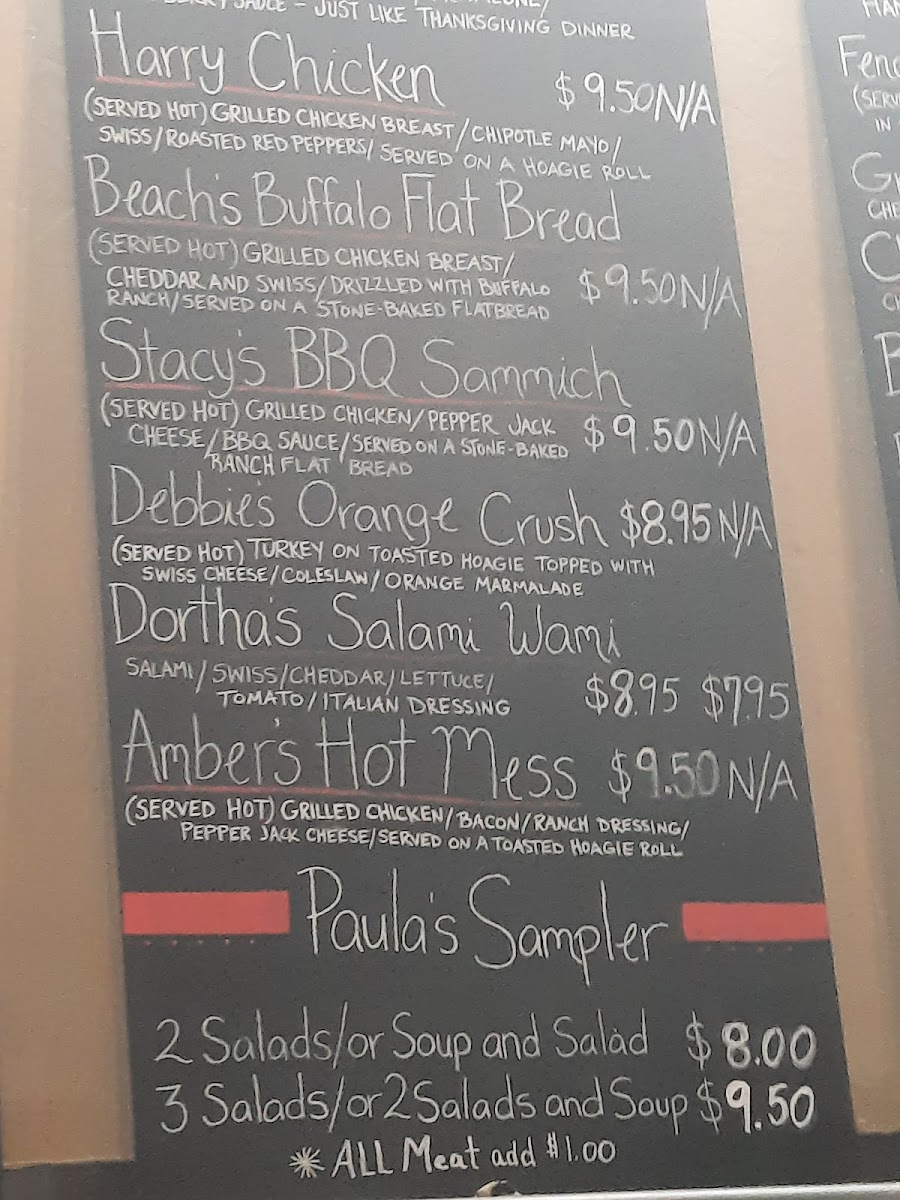 SAUCE - JUST LIKE THANKSGIVING DINNER
Harry Chicken $9.50 N/A
(SERVED HOT) GRILLED CHICKEN BREAST/CHIPOTLE MAYO/
SWISS/ROASTED RED PEPPERS/SERVED ON A HOAGIE ROLL
Beach's Buffalo Flat Bread
(SERVED HOT) GRILLED CHICKEN BREAST/
CHEDDAR AND SWISS/DRIZZLED WITH BUFFALO $9.50 N/A
RANCH/SERVED ON A STONE-BAKED FLATBREAD
Stacy's BBQ Sammich
(SERVED HOT) GRILLED CHICKEN/PEPPER JACK $9.50 N/A
CHEESE/BBQ SAUCE/SERVED ON A STONE-BAKED
RANCH FLAT BREAD
Debbie's Orange Crush $8.95 N/A
(SERVED HOT) TURKEY ON TOASTED HOAGIE TOPPED WITH
SWISS CHEESE/COLESLAW/ORANGE MARMALADE
Dortha's Salami Wami
SALAMI/SWISS/CHEDDAR/LETTUCE/ $8.95 $7.95
TOMATO/ITALIAN DRESSING
Amber's Hot Mess $9.50 N/A
(SERVED HOT) GRILLED CHICKEN/BACON/RANCH DRESSING/
PEPPER JACK CHEESE/SERVED ON A TOASTED HOAGIE ROLL
Paula's Sampler
2 Salads/or Soup and Salad $8.00
3 Salads/or 2 Salads and Soup $9.50
* ALL Meat add $1.00
(SERV
IN